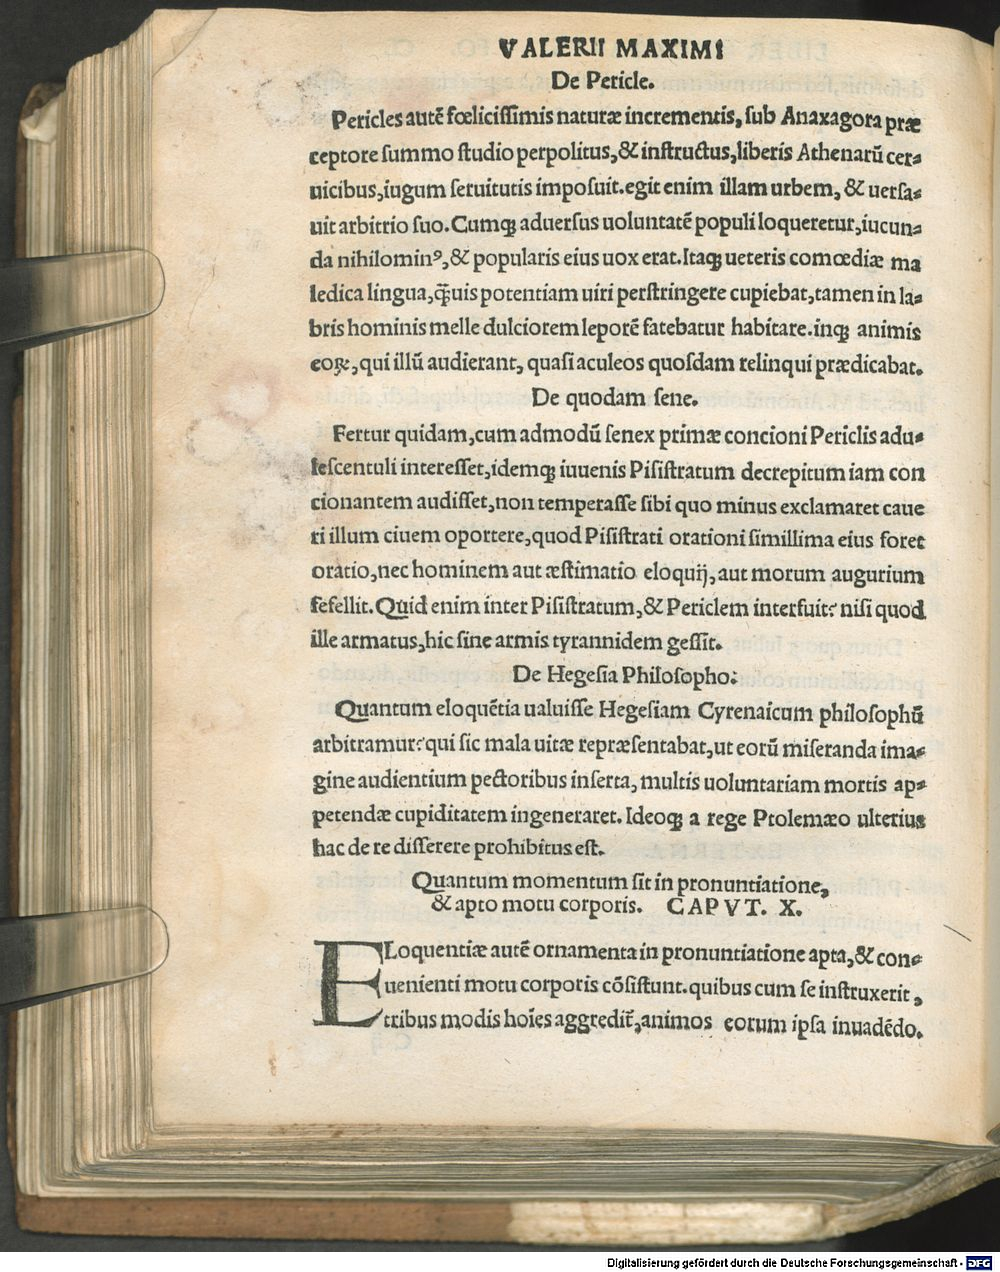 VALERII MAXIMI
De Pericle.
Pericles autē fœlicissimis naturæ incrementis, sub Anaxagora præ
ceptore summo studio perpolitus,& instructus,liberis Athenarū cer⸗
uicibus,iugum seruitutis imposuit.egit enim illam urbem, & uersa⸗
uit arbitrio suo. Cumq; aduersus uoluntatē populi loqueretur,iucun⸗
da nihilominꝰ,& popularis eius uox erat.Itaq; ueteris comœdiæ ma
ledica lingua,q̃uis potentiam uiri perstringere cupiebat,tamen in la⸗
bris hominis melle dulciorem leporē fatebatur habitare.inq; animis
eoꝝ,qui illū audierant, quasi aculeos quosdam relinqui prædicabat.
De quodam sene.
Fertur quidam,cum admodū senex primæ concioni Periclis adu⸗
lescentuli interesset,idemq; iuuenis Pisistratum decrepitum iam con
cionantem audisset,non temperasse sibi quo minus exclamaret caue
ri illum ciuem oportere,quod Pisistrati orationi simillima eius foret
oratio,nec hominem aut æstimatio eloquij,aut morum augurium
fefellit.Quid enim inter Pisistratum,& Periclem interfuit? nisi quod
ille armatus,hic sine armis tyrannidem gessit.
De Hegesia Philosopho:
Quantum eloquētia ualuisse Hegesiam Cyrenaicum philosophū
arbitramur?qui sic mala uitæ repræsentabat,ut eorū miseranda ima⸗
gine audientium pectoribus inserta, multis uoluntariam mortis ap⸗
petendæ cupiditatem ingeneraret. Ideoq; a rege Ptolemæo ulterius
hac de re disserere prohibitus est.
Quantum momentum sit in pronuntiatione,
& apto motu corporis. CAPVT. X.
ELoquentiæ autē ornamenta in pronuntiatione apta,& con⸗
uenienti motu corporis cōsistunt.quibus cum se instruxerit,
tribus modis hoīes aggredit̄,animos eorum ipsa inuadēdo.
Digitalisierung gefördert durch die Deutsche Forschungsgemeinschaft - DFG